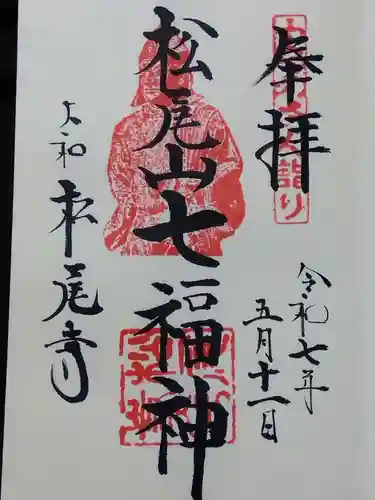 奉拝
令和七年
五月十一日
松尾山七福神
大和
松尾寺
詣り